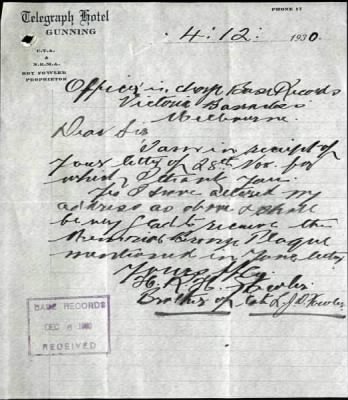 Telegraph Hotel
GUNNING
PHONE 17
C.T.A.
&
N.R.M.A.
ROY FOWLER
PROPRIETOR
4.12.1930.
Officer in charge Base Records
Victoria Barracks
Melbourne.
Dear Sir
I am in receipt of
Your letter of 28th Nov. for
which I thank You.
Yes I have altered my
address as above & shall
be very glad to receive the
Memorial Bronze Plaque
mentioned in Your letter
Yours
H. R. H. Fowler
Brother of L. J. D. Fowler
BASE RECORDS
DEC 6 1930
RECEIVED